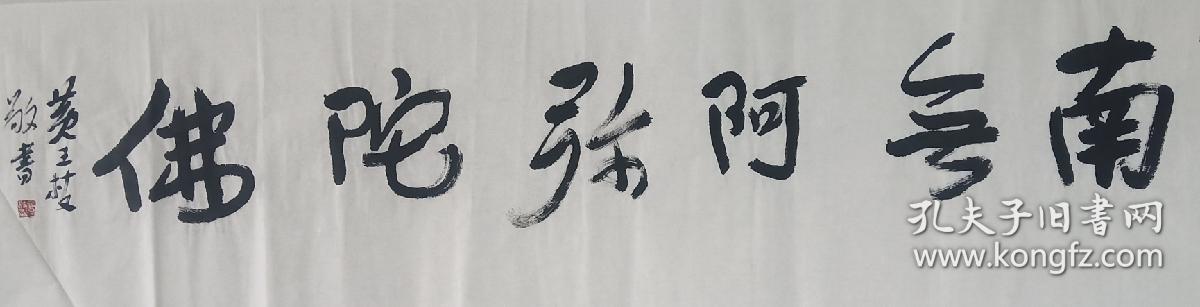 南無阿弥陀佛
黄玉枝
敬書
孔夫子旧書网
www.kongfz.com